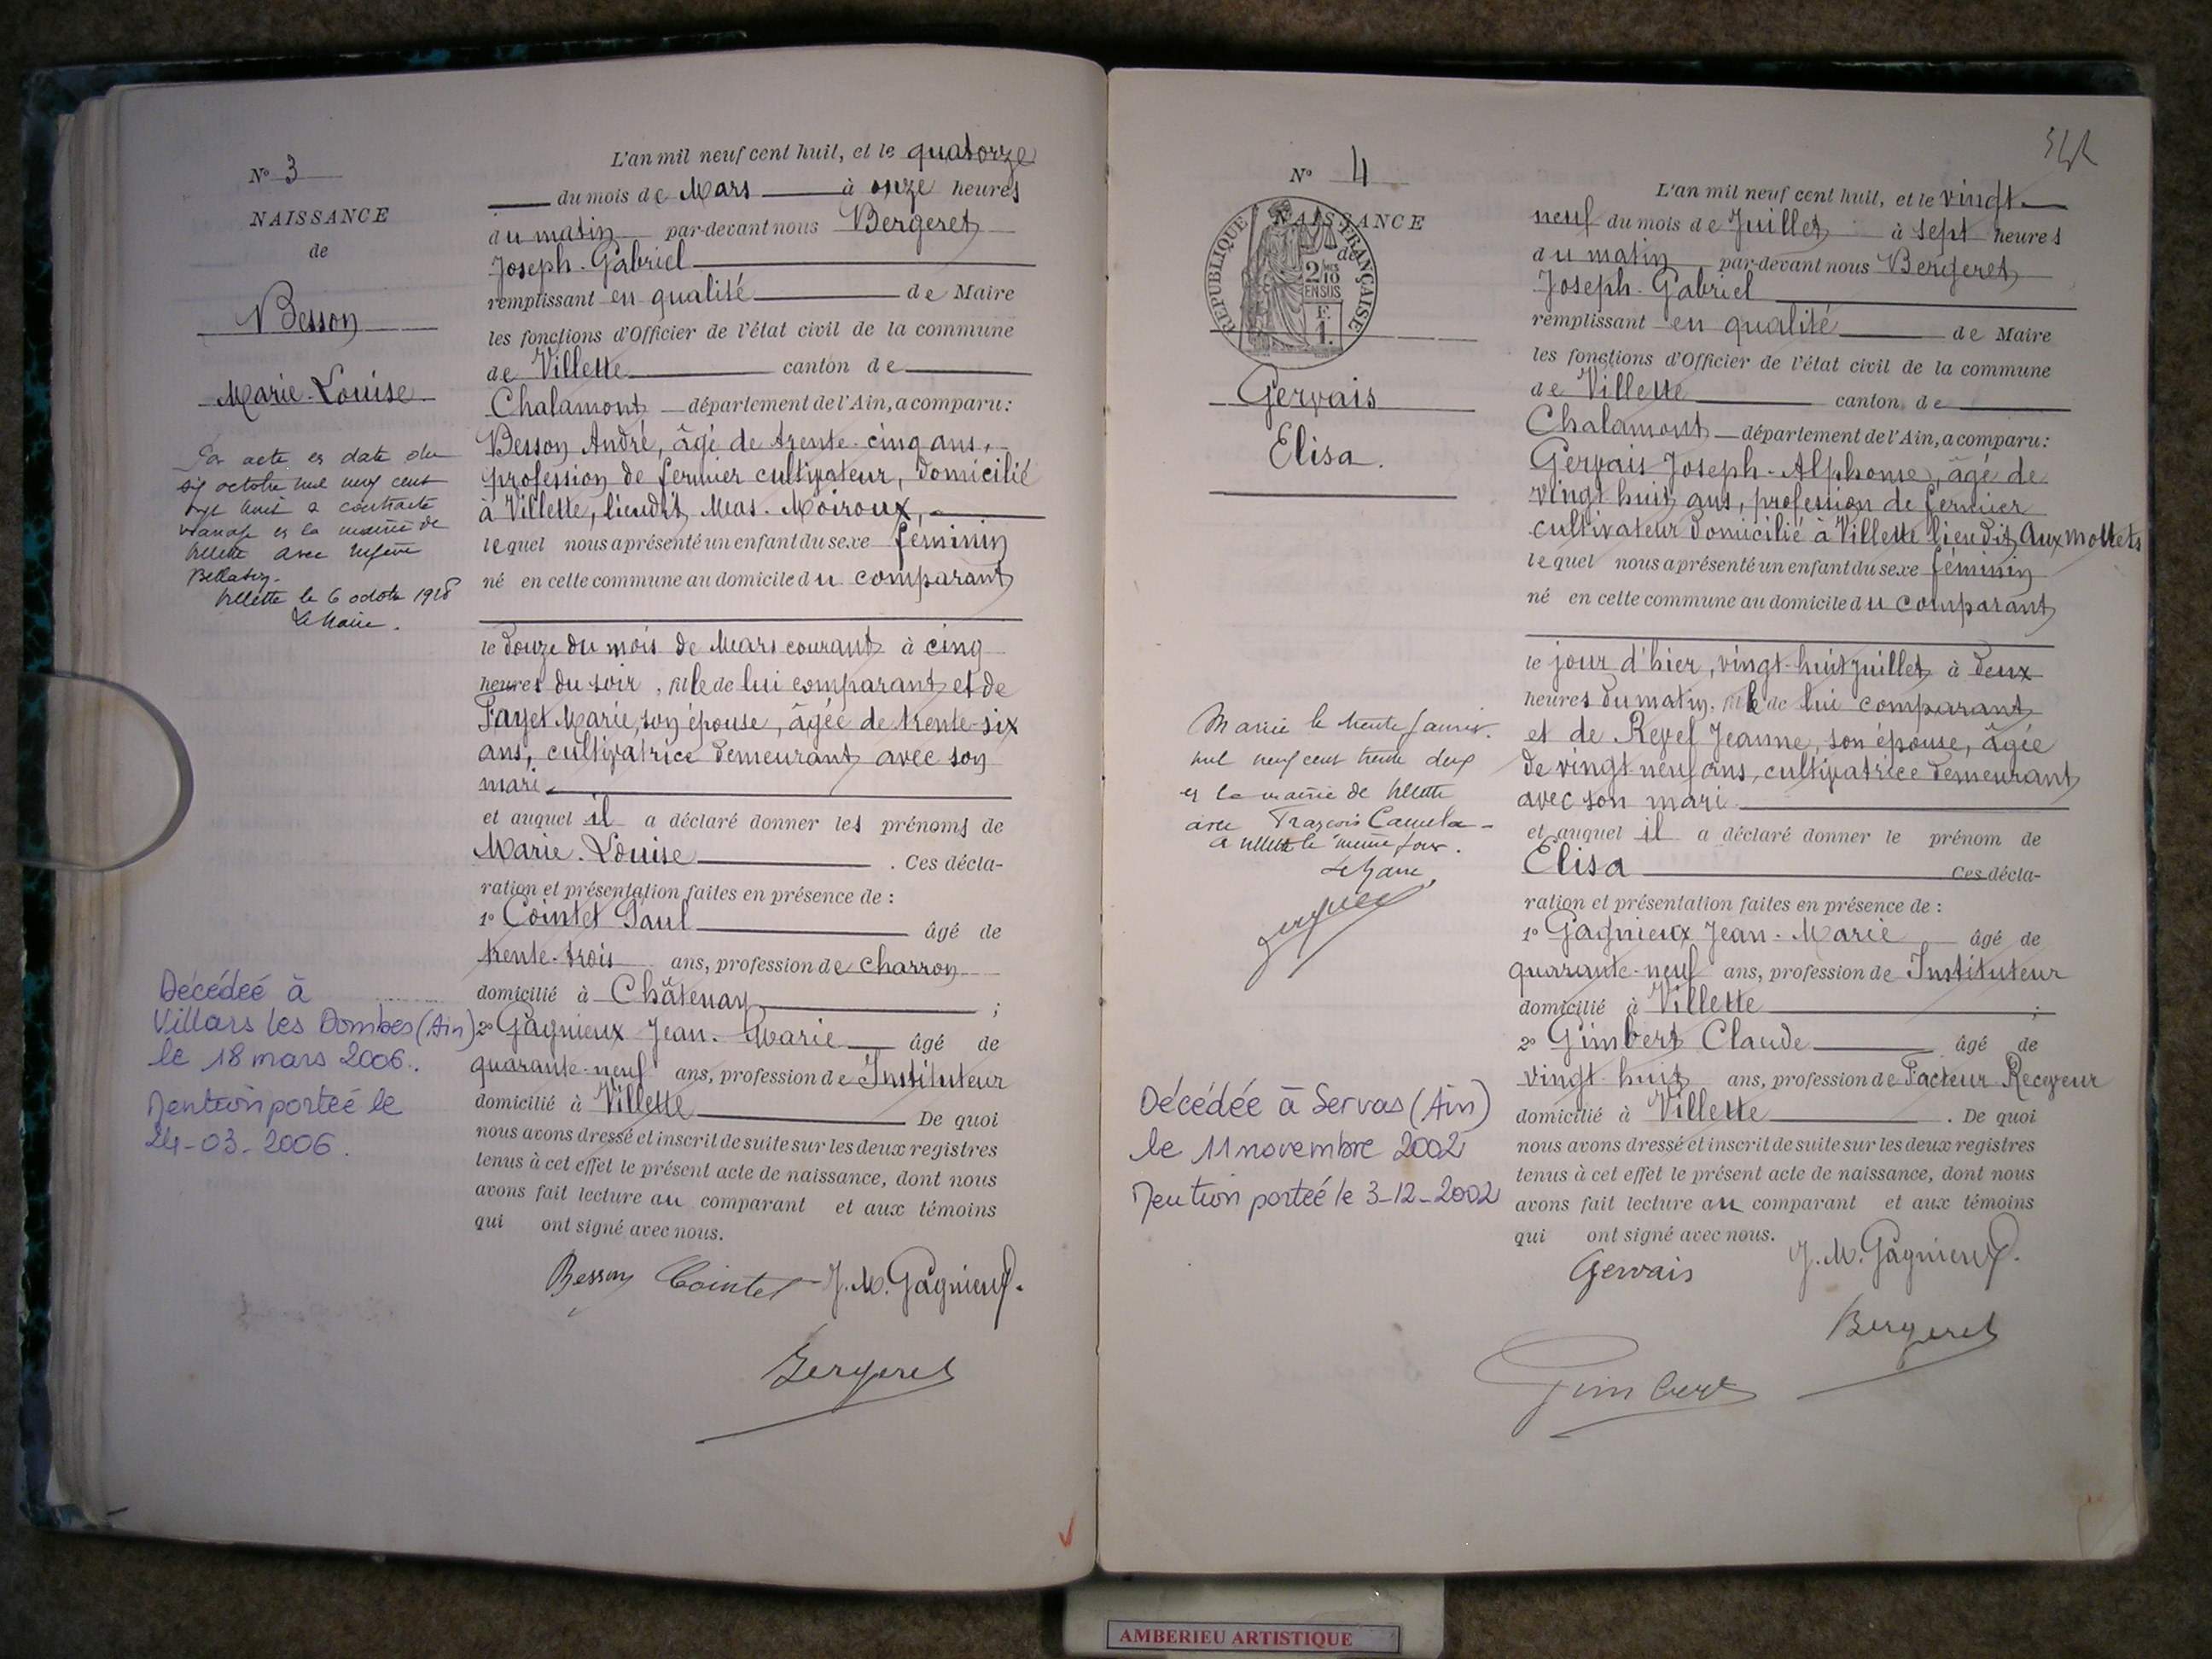 Nº 3
NAISSANCE
de
Besson
Marie-Louise
Par acte en date du
six octobre mil neuf cent
vingt huit a contracté
mariage en la mairie de
Villette avec
Villette le 6 octobre 1928
Le Maire.
Décédée à
Villars les Dombes (Ain)
le 18 mars 2006.
Mention portée le
24-03-2006.
L'an mil neuf cent huit, et le quatorze
du mois de Mars à onze heures
du matin par-devant nous Bergeret
Joseph-Gabriel
remplissant en qualité de Maire
les fonctions d'Officier de l'état civil de la commune
de Villette canton de
Chalamont département de l'Ain, a comparu:
Besson André, âgé de trente-cinq ans,
profession de fermier cultivateur, domicilié
à Villette, lieudit Mas-Moiroux,
lequel nous a présenté un enfant du sexe féminin
né en cette commune au domicile du comparant
le douze du mois de Mars courant à cinq
heures du soir, fille de lui comparant et de
Fayet Marie, son épouse, âgée de trente-six
ans, cultivatrice demeurant avec son
mari
et auquel il a déclaré donner les prénoms de
Marie-Louise. Ces décla-
ration et présentation faites en présence de :
1º Cointet Paul âgé de
trente-trois ans, profession de charron
domicilié à Châtenay ;
2º Gagnieux Jean-Marie âgé de
quarante-neuf ans, profession de Instituteur
domicilié à Villette De quoi
nous avons dressé et inscrit de suite sur les deux registres
tenus à cet effet le présent acte de naissance, dont nous
avons fait lecture au comparant et aux témoins
qui ont signé avec nous.
Besson Cointet J. M. Gagnieux.
Bergeret
Nº 4
NAISSANCE
de
RÉPUBLIQUE FRANÇAISE
2/10 EN SUS
F.
1.
Gervais
Elisa.
Mariée le trente janvier
mil neuf cent trente deux
en la mairie de Villette
avec François
a Villette le même jour.
Le Maire,
Décédée à Servas (Ain)
le 11 novembre 2002
Mention portée le 3-12-2002
L'an mil neuf cent huit, et le vingt
neuf du mois de Juillet à sept heures
du matin par-devant nous Bergeret
Joseph-Gabriel
remplissant en qualité de Maire
les fonctions d'Officier de l'état civil de la commune
de Villette canton de
Chalamont département de l'Ain, a comparu:
Gervais Joseph-Alphonse, âgé de
vingt huit ans, profession de fermier
cultivateur domicilié à Villette lieudit Aux mollets
lequel nous a présenté un enfant du sexe féminin
né en cette commune au domicile du comparant
le jour d'hier, vingt-huit juillet à deux
heures du matin, fille de lui comparant
et de Revel Jeanne, son épouse, âgée
de vingt-neuf ans, cultivatrice demeurant
avec son mari
et auquel il a déclaré donner le prénom de
Elisa Ces décla-
ration et présentation faites en présence de :
1º Gagnieux Jean-Marie âgé de
quarante-neuf ans, profession de Instituteur
domicilié à Villette ;
2º Gimbert Claude âgé de
vingt huit ans, profession de Facteur Receveur
domicilié à Villette. De quoi
nous avons dressé et inscrit de suite sur les deux registres
tenus à cet effet le présent acte de naissance, dont nous
avons fait lecture au comparant et aux témoins
qui ont signé avec nous.
Gervais J. M. Gagnieux.
Bergeret
Gimbert
AMBERIEU ARTISTIQUE